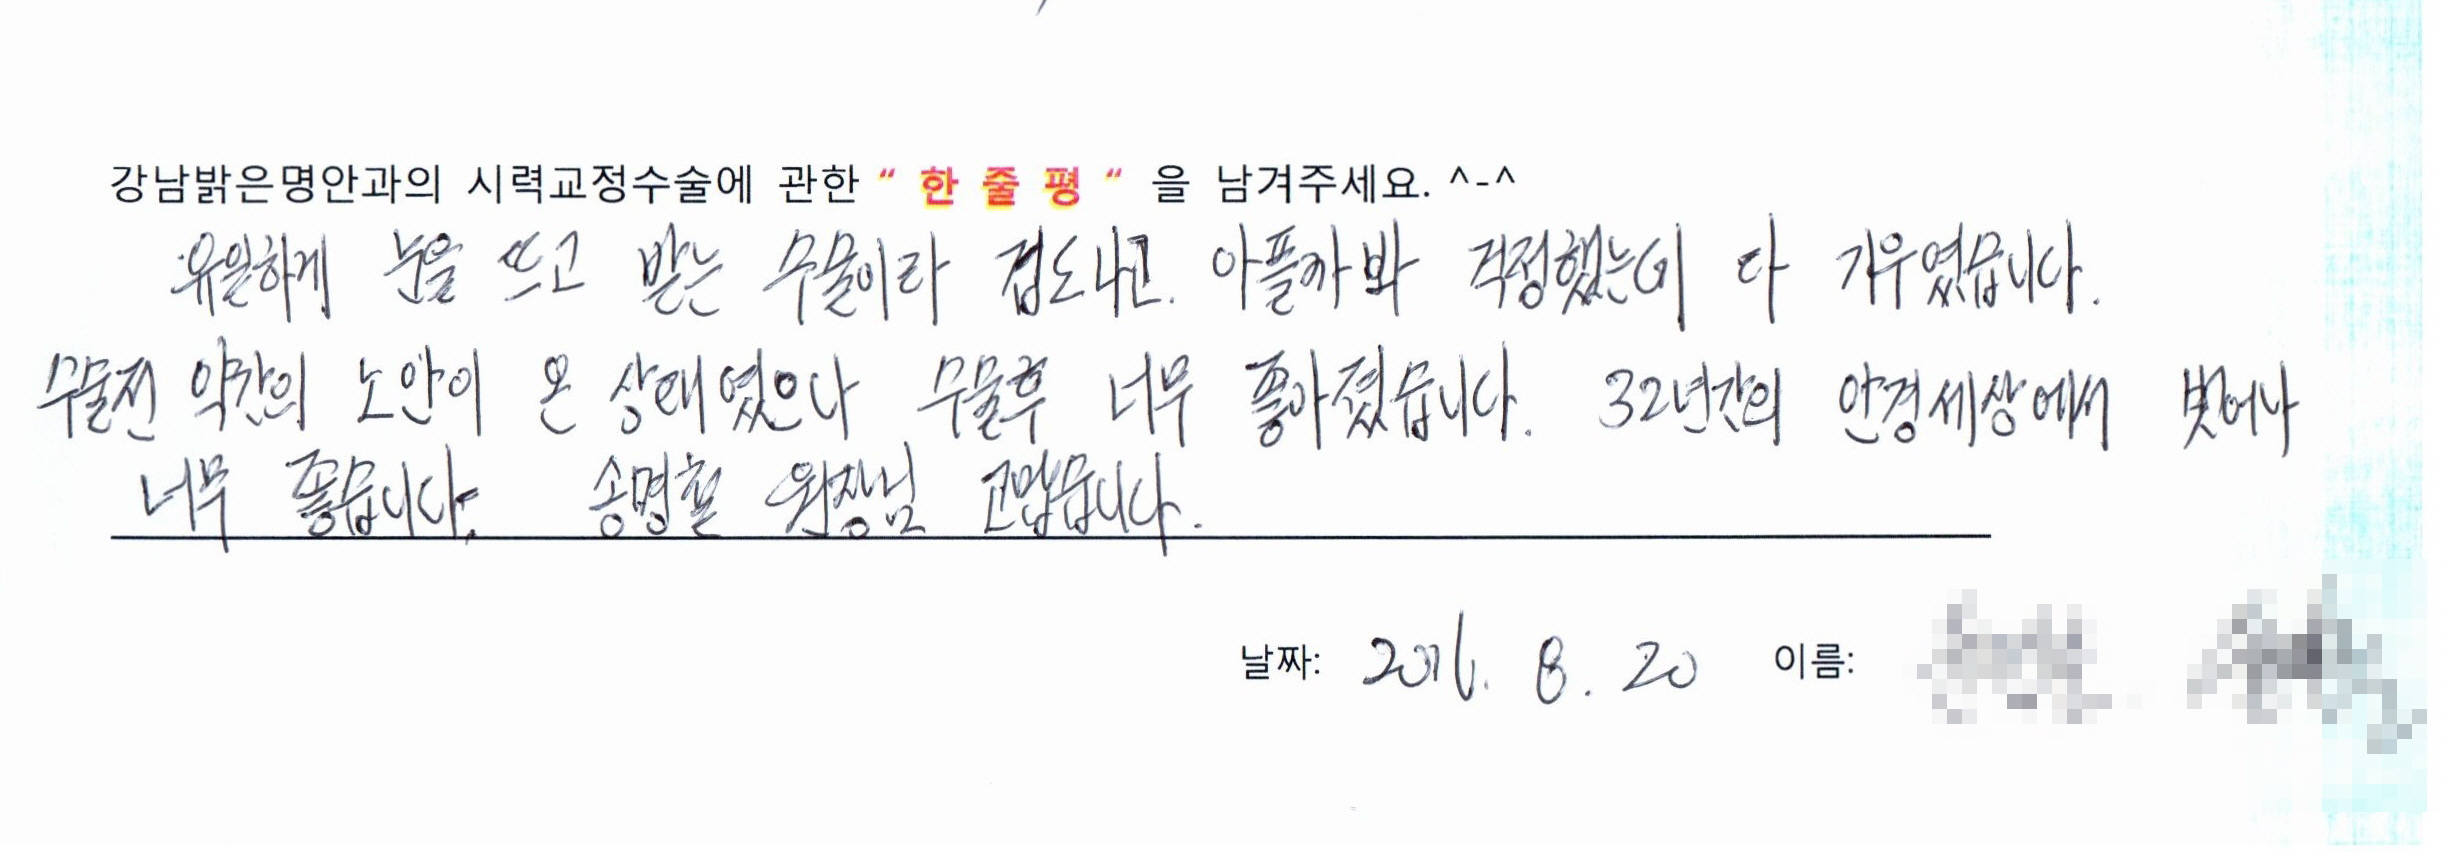 강남밝은명안과의 시력교정수술에 관한 “ 한 줄 평 “ 을 남겨주세요. ^-^
유일하게 눈을 뜨고 받는 수술이라 겁도나고. 아플까봐 걱정했는데 다 기우였습니다.
수술전 약간의 노안이 온 상태였으나 수술후 너무 좋아졌습니다. 32년간의 안경세상에서 벗어나
너무 좋습니다. 송명철 원장님 고맙습니다.
날짜: 2016. 8. 20 이름: